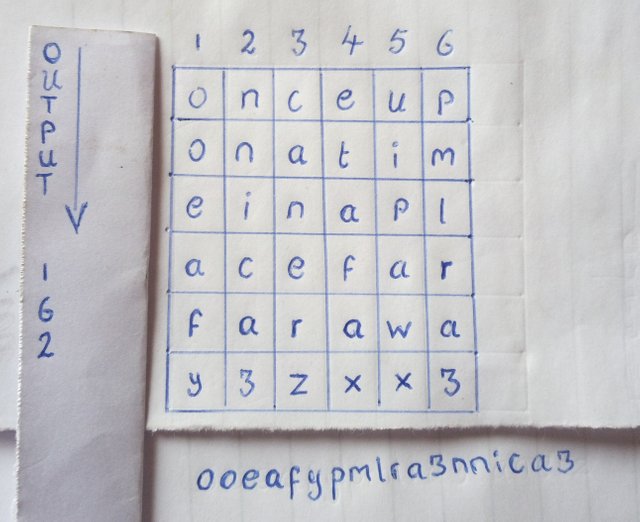 OUTPUT
1
6
2
1 2 3 4 5 6
o n c e u p
o n a t i m
e i n a p l
a c e f a r
f a r a w a
y 3 z x x 3
ooeafypmlra3nnica3